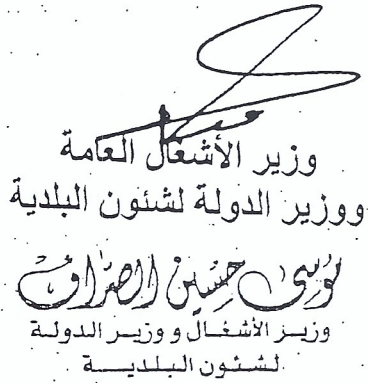 وزير الأشغال العامة
ووزير الدولة لشئون البلدية
موسى حسين الصراف
وزير الأشغال ووزير الدولة
لشئون البلدية